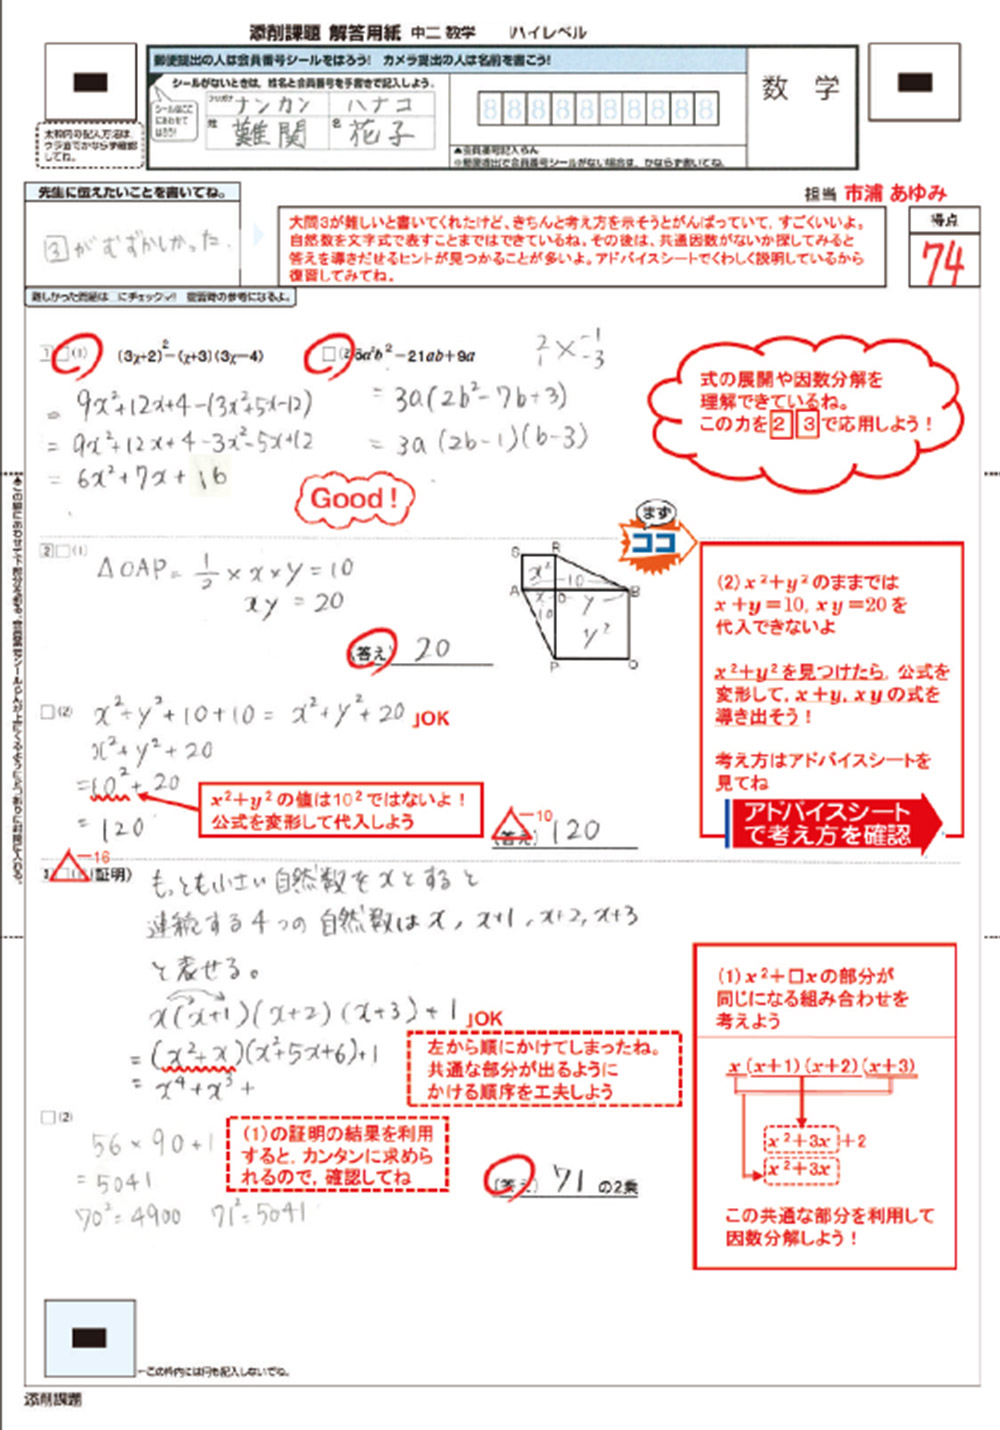 添削課題 解答用紙 中二 数学 ハイレベル
郵便提出の人は会員番号シールをはろう! カメラ提出の人は名前を書こう!
シールがないときは、姓名と会員番号を手書きで記入しよう。
シールはここにあわせてはろう!
フリガナ ナンカン ハナコ
姓 難関 名 花子
8 8 8 8 8 8 8 8 8 8
▲会員番号記入らん
※郵便提出で会員番号シールがない場合は、かならず書いてね。
数 学
太枠内の記入方法は、
ウラ面でかならず確認
してね。
先生に伝えたいことを書いてね。
3がむずかしかった。
担当 市浦 あゆみ
大問3が難しいと書いてくれたけど、きちんと考え方を示そうとがんばっていて、すごくいいよ。
自然数を文字式で表すことまではできているね。その後は、共通因数がないか探してみると
答えを導きだせるヒントが見つかることが多いよ。アドバイスシートでくわしく説明しているから
復習してみてね。
得点
74
難しかった問題は□にチェック✓! 復習時の参考になるよ。
1 □(1) (3x+2)²−(x+3)(3x−4)
= 9x²+12x+4−(3x²+5x−12)
= 9x²+12x+4−3x²−5x+12
= 6x²+7x+16
□(2) 6a²b²−21ab+9a
= 3a(2b²−7b+3)
= 3a(2b−1)(b−3)
2 −1
1 × −3
Good!
式の展開や因数分解を
理解できているね。
この力を2 3で応用しよう!
2 □(1)
△OAP= 1/2 × x × y = 10
xy = 20
(答え) 20
S R
x² 10
A x O y B
10 y²
P Q
まず
ココ
(2) x²+y²のままでは
x+y=10, xy=20を
代入できないよ
x²+y²を見つけたら、公式を
変形して、x+y, xyの式を
導き出そう!
考え方はアドバイスシートを
見てね
アドバイスシート
で考え方を確認
□(2) x²+y²+10+10= x²+y²+20 」OK
x²+y²+20
=10²+20
= 120
x²+y²の値は10²ではないよ!
公式を変形して代入しよう
−10
(答え) 120
−16
3 □(1)(証明) もっとも小さい自然数をxとすると
連続する4つの自然数はx, x+1, x+2, x+3
と表せる。
x(x+1)(x+2)(x+3)+1 」OK
=(x²+x)(x²+5x+6)+1
= x⁴+x³+
左から順にかけてしまったね。
共通な部分が出るように
かける順序を工夫しよう
(1) x²+□xの部分が
同じになる組み合わせを
考えよう
x(x+1)(x+2)(x+3)
x²+3x +2
x²+3x
この共通な部分を利用して
因数分解しよう!
□(2)
56×90+1
= 5041
70²=4900 71²=5041
(1)の証明の結果を利用
すると、カンタンに求めら
れるので、確認してね
(答え) 71 の2乗
←この枠内には何も記入しないでね。
添削課題